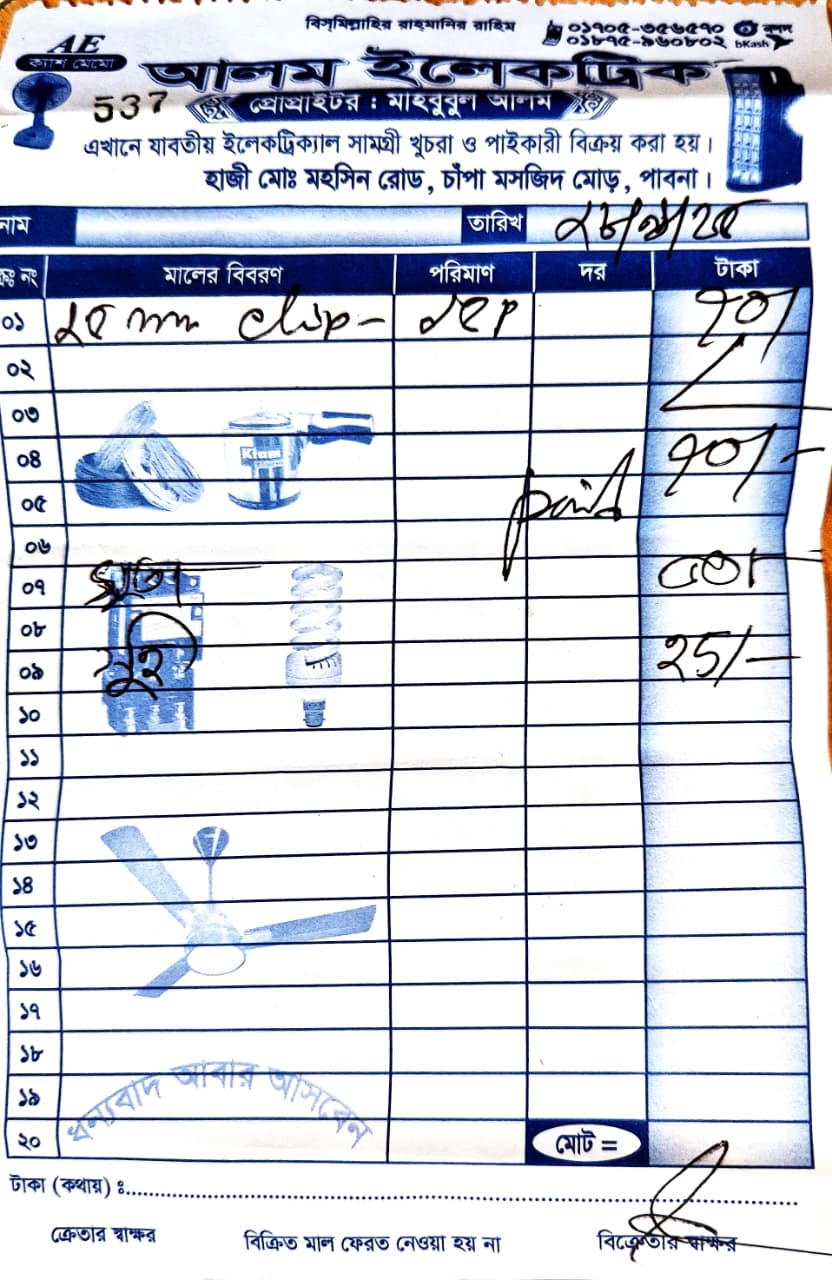 বিস্‌মিল্লাহির রাহমানির রাহিম
০১৭০৫-৩৫৬৫৭০ নগদ
০১৮৭৫-৯৬০৮০২ bKash
AE
ক্যাশ মেমো
আলম ইলেকট্রিক
537
প্রোপ্রাইটর : মাহবুবুল আলম
এখানে যাবতীয় ইলেকট্রিক্যাল সামগ্রী খুচরা ও পাইকারী বিক্রয় করা হয়।
হাজী মোঃ মহসিন রোড, চাঁপা মসজিদ মোড়, পাবনা।
নাম তারিখ
ক্রঃ নং মালের বিবরণ পরিমাণ দর টাকা
০১ ২৫ mm clip- ৭০/
০২
০৩
০৪ ৭০/-
০৫ paid
০৬
Kiam
০৭
০৮
০৯ ২৫/-
১০
১১
১২
১৩
১৪
১৫
১৬
১৭
১৮
১৯
২০ মোট =
ধন্যবাদ আবার আসবেন
টাকা (কথায়) ঃ
ক্রেতার স্বাক্ষর বিক্রিত মাল ফেরত নেওয়া হয় না বিক্রেতার স্বাক্ষর